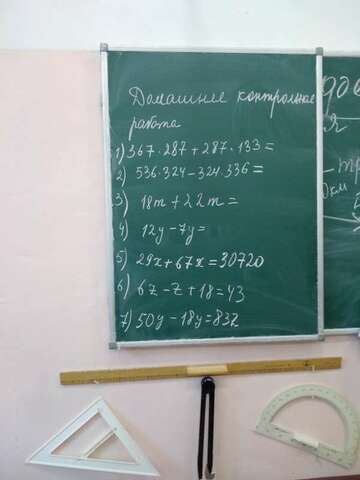 Домашнее контрольное
работа
1) 367 · 287 + 287 · 133 =
2) 536 · 324 - 324 · 336 =
3) 18m + 22m =
4) 12y - 7y =
5) 29x + 67x = 30720
6) 6z - z + 18 = 43
7) 50y - 18y = 832